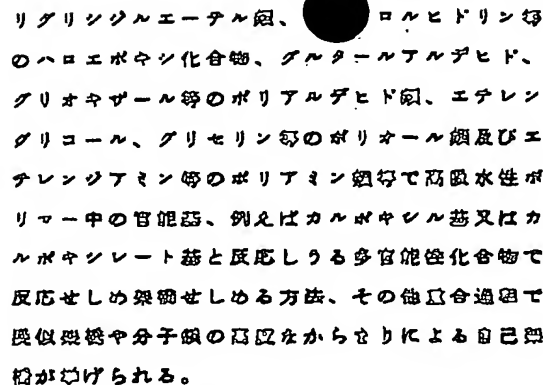 リグリシジルエーテル類、 ロルヒドリン等
のハロエポキシ化合物、グルタールアルデヒド、
グリオキザール等のポリアルデヒド類、エチレン
グリコール、グリセリン等のポリオール類及びエ
チレンジアミン等のポリアミン類等で高吸水性ポ
リマー中の官能基、例えばカルボキシル基又はカ
ルボキシレート基と反応しうる多官能性化合物で
反応せしめ架橋せしめる方法、その他重合過程で
分子鎖の からまりによる自己架
橋が挙げられる。